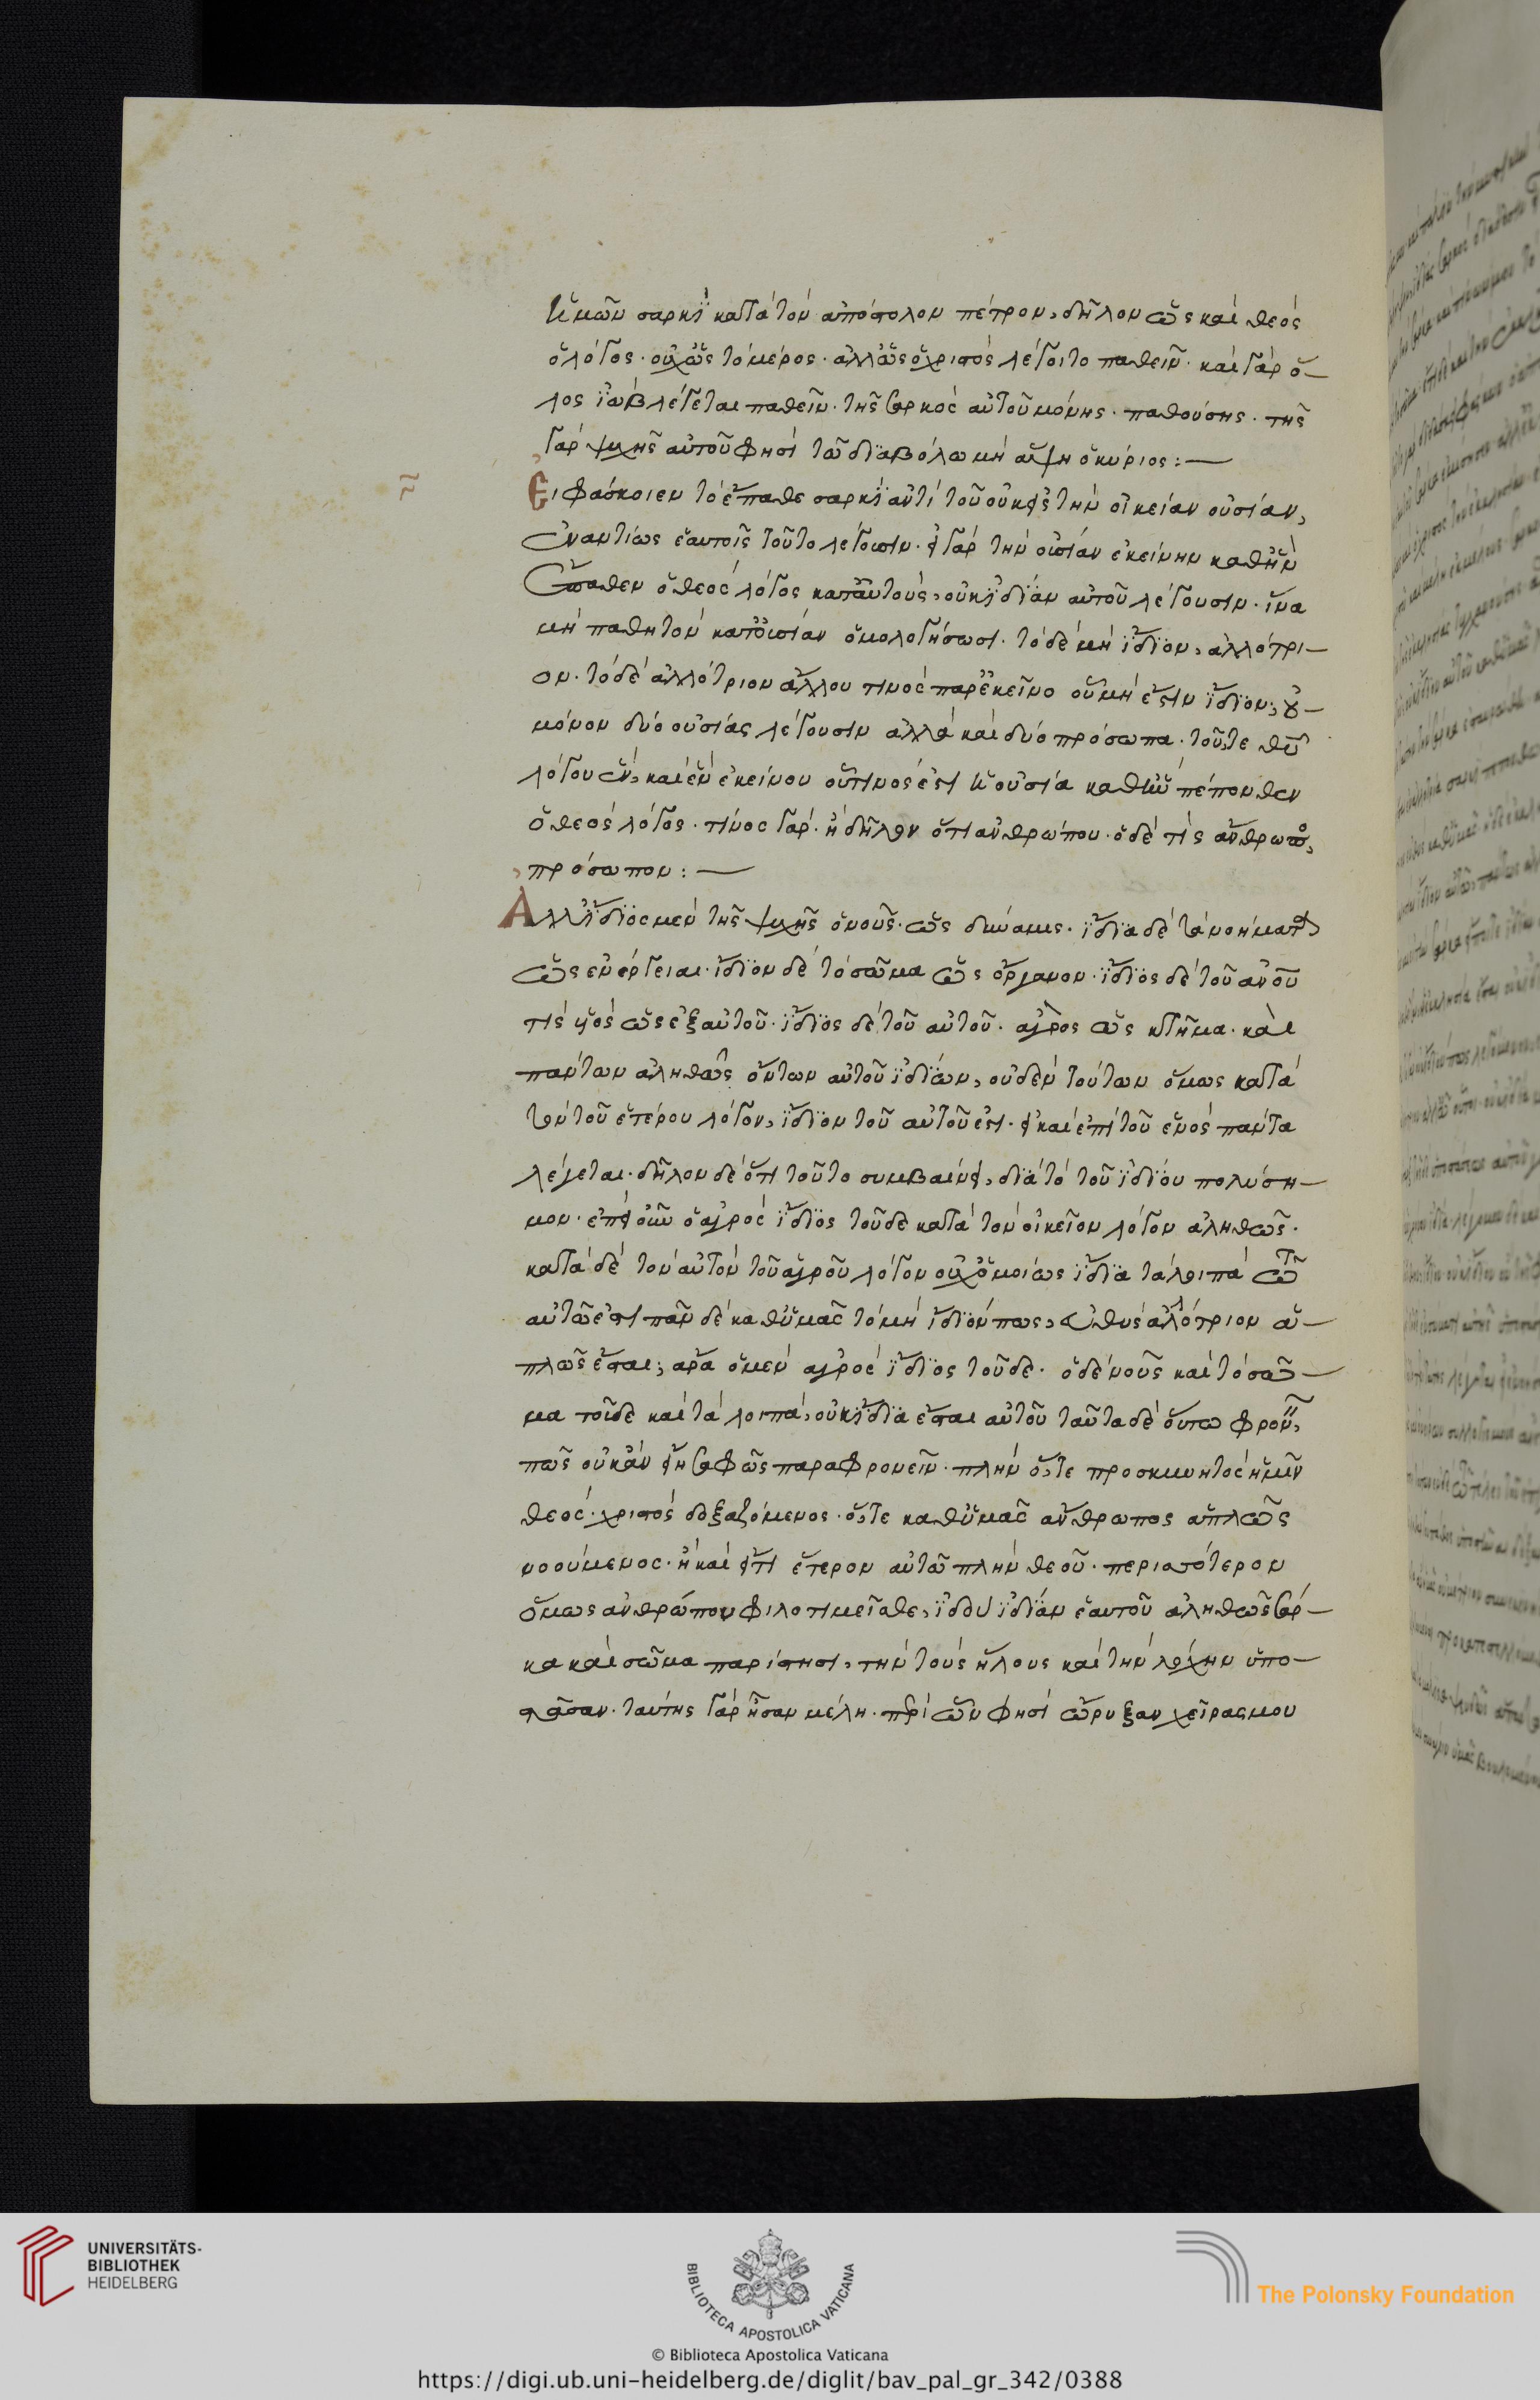 ἡμῶν σαρκὶ κατὰ τὸν ἀπόστολον πέτρον, δῆλον ὡς καὶ θεὸς
ὁ λόγος· οὐχ ὡς τὸ μέρος· ἀλλ' ὡς ὁ χριστὸς λέγοιτο παθεῖν· καὶ γὰρ ὅ-
λος ἰὼβ λέγεται παθεῖν· τῆς σαρκὸς αὐτοῦ μόνης· παθούσης· τῆς
γὰρ ψυχῆς αὐτοῦ φησὶ τῶ διαβόλω μὴ ἅψη ὁ κύριος:—
Εἰ φάσκοιεν τὸ ἔπαθε σαρκὶ ἀντὶ τοῦ οὐκ εἰς τὴν οἰκείαν οὐσίαν,
ἐναντίως ἑαυτοῖς τοῦτο λέγωσιν· εἰ γὰρ τὴν οὐσίαν ἐκείνην καθ' ἣν
ἔπαθεν ὁ θεὸς λόγος κατ' αὐτοὺς, οὐκ ἰδίαν αὐτοῦ λέγουσιν· ἵνα
μὴ παθητὸν κατ' οὐσίαν ὁμολογήσωσι· τὸ δὲ μὴ ἴδιον, ἀλλότρι-
ον· τὸ δὲ ἀλλότριον ἄλλου τινὸς παρ' ἐκεῖνο οὗ μή ἐστιν ἴδιον, οὐ
μόνον δύο οὐσίας λέγουσιν ἀλλὰ καὶ δύο πρόσωπα· τοῦ τε θεοῦ
λόγου ἓν, καὶ ἓν ἐκείνου οὗτινός ἐστι ἡ οὐσία καθ' ἣν πέπονθεν
ὁ θεὸς λόγος· τίνος γὰρ· ἢ δῆλον ὅτι ἀνθρώπου· ὁ δέ τις ἄνθρωπος,
πρόσωπον:—
Ἀλλ' ἴδιος μὲν τῆς ψυχῆς ὁ νοῦς· ὡς δύναμις· ἴδια δὲ τὰ νοήματα,
ὡς ἐνέργειαι· ἴδιον δὲ τὸ σῶμα ὡς ὄργανον· ἴδιος δὲ τοῦ ἀνου
τὶς υἱὸς ὡς ἐξ αὐτοῦ· ἴδιος δὲ τοῦ αὐτοῦ· ἀγρὸς ὡς κτῆμα· καὶ
πάντων ἀληθῶς ὄντων αὐτοῦ ἰδίων, οὐδὲν τούτων ὅμως κατὰ
τὸν τοῦ ἑτέρου λόγον, ἴδιον τοῦ αὐτοῦ ἐστι· εἰ καὶ ἐπὶ τοῦ ἑνὸς πάντα
λέγεται· δῆλον δὲ ὅτι τοῦτο συμβαίνει, διὰ τὸ τοῦ ἰδίου πολύση-
μον· ἐπεὶ οὖν ὁ ἀγρὸς ἴδιος τοῦδε κατὰ τὸν οἰκεῖον λόγον ἀληθῶς·
κατὰ δὲ τὸν αὐτὸν τοῦ ἀγροῦ λόγον οὐχ ὁμοίως ἴδια τὰ λοιπὰ τῶν
αὐτῶ ἐστι πᾶν δὲ καθ' ὑμᾶς τὸ μὴ ἴδιόν πως, εὐθὺς ἀλλότριον ἁ-
πλῶς ἔσται, ἆρα ὁ μὲν ἀγρὸς ἴδιος τοῦδε· ὁ δὲ νοῦς καὶ τὸ σῶ-
μα τοῦδε καὶ τὰ λοιπὰ, οὐκ ἴδια ἔσται αὐτοῦ ταῦτα δὲ οὕτω φρονεῖν,
πῶς οὐκ ἂν εἴη σαφῶς παραφρονεῖν· πλὴν ὅ, τε προσκυνητὸς ἡμῖν
θεὸς· χριστὸς δοξαζόμενος· ὅ, τε καθ' ὑμᾶς ἄνθρωπος ἁπλῶς
νοούμενος· ἢ καὶ εἴ τι ἕτερον αὐτῶ πλὴν θεοῦ· περισσότερον
ὅμως ἀνθρώπου φιλοτιμεῖσθε, ἰδοὺ ἰδίαν ἑαυτοῦ ἀληθῶς σάρ-
κα καὶ σῶμα παρίστησι, τὴν τοὺς ἥλους καὶ τὴν λόγχην ὑπο-
στᾶσαν· ταύτης γὰρ ἦσαν μέλη· περὶ ὧν φησὶ ὤρυξαν χεῖρας μου
UNIVERSITÄTS-
BIBLIOTHEK
HEIDELBERG
BIBLIOTECA APOSTOLICA VATICANA
The Polonsky Foundation
© Biblioteca Apostolica Vaticana
https://digi.ub.uni-heidelberg.de/diglit/bav_pal_gr_342/0388